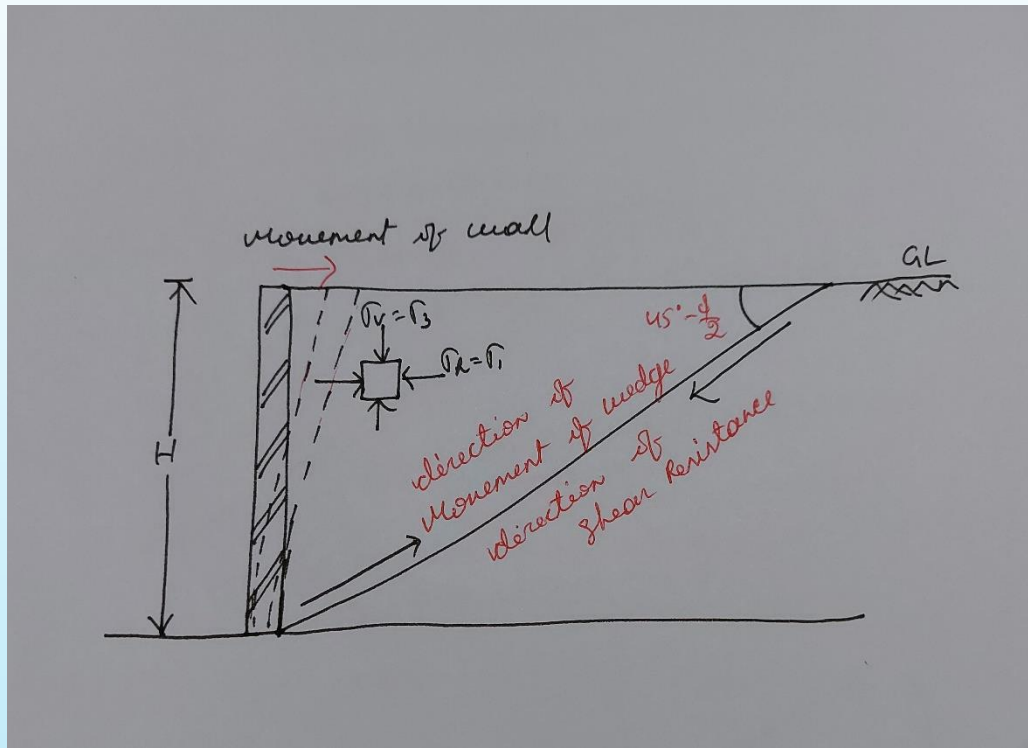 Movement of wall
GL
σv = σ3
σh = σ1
45° - φ/2
H
direction of
Movement of wedge
direction of
Shear Resistance